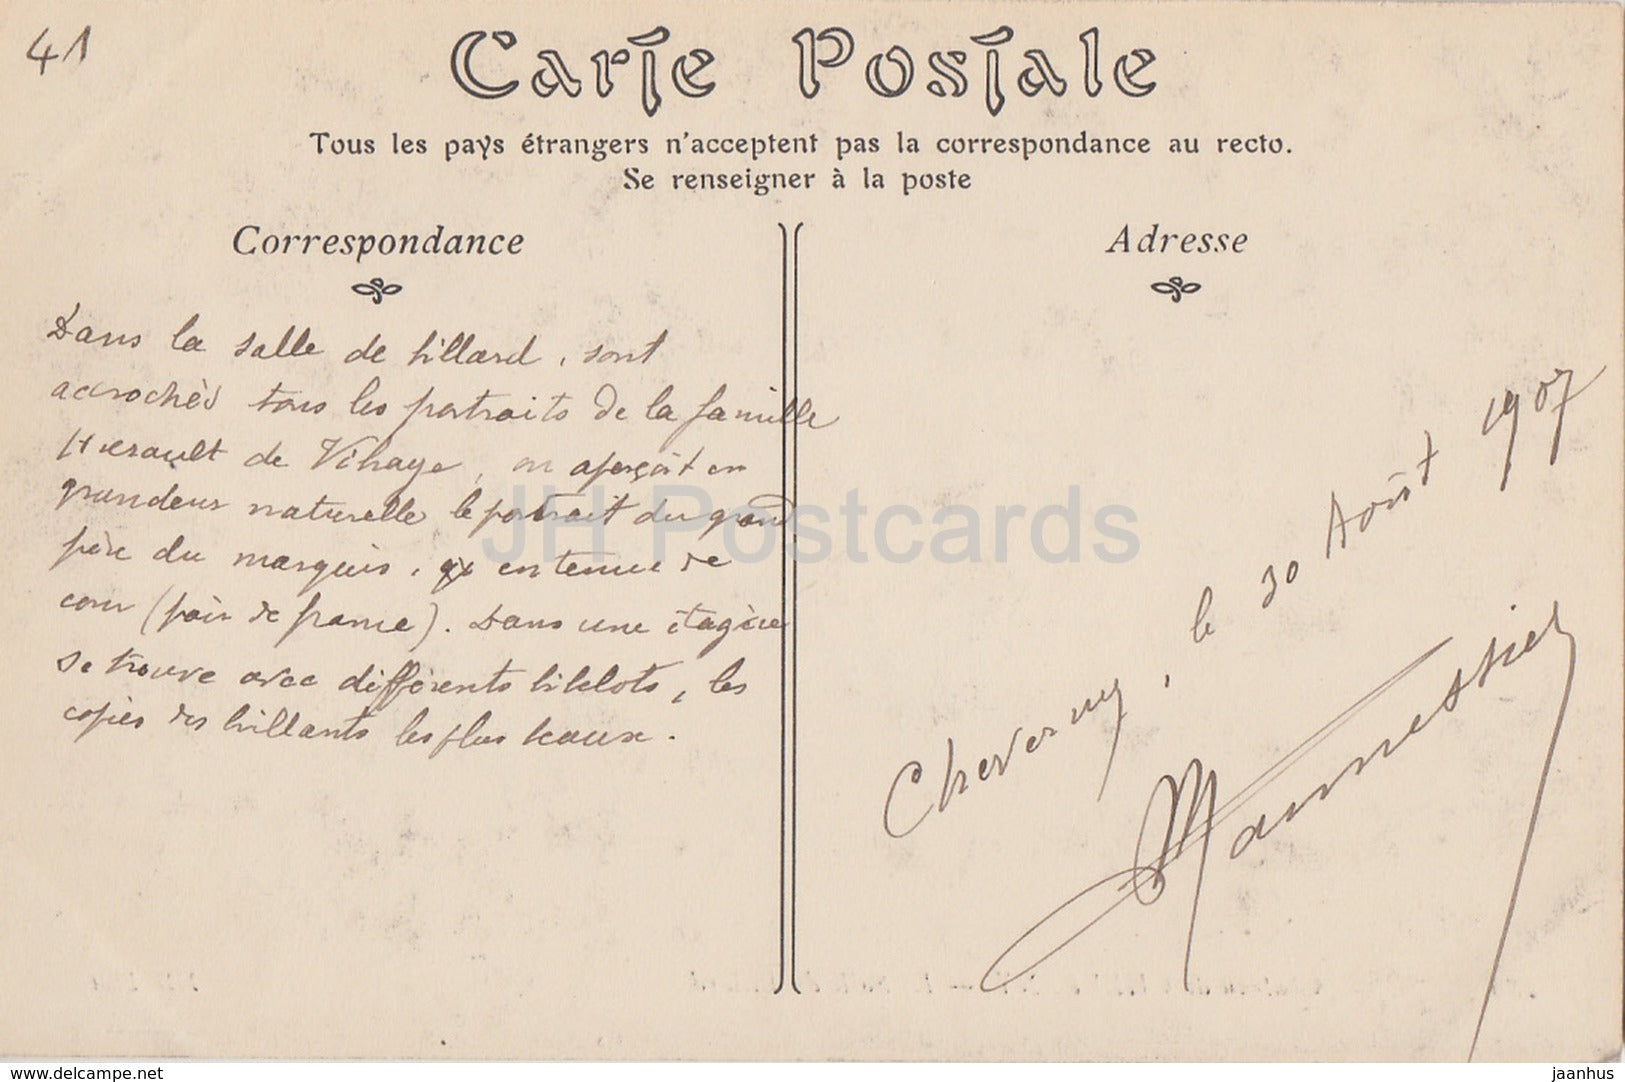 41
Carte Postale
Tous les pays étrangers n'acceptent pas la correspondance au recto.
Se renseigner à la poste
Correspondance
Dans la salle de billard, sont
accrochés tous les portraits de la famille
Hérault de Vibraye, on aperçoit en
grandeur naturelle le portrait du grand
père du marquis, en tenue de
cour (pair de france). Dans une étagère
se trouve avec différents bibelots, les
copies des brillants les plus beaux.
Adresse
Cheverny, le 30 Août 1907
JH Postcards
www.delcampe.net
jaanhus